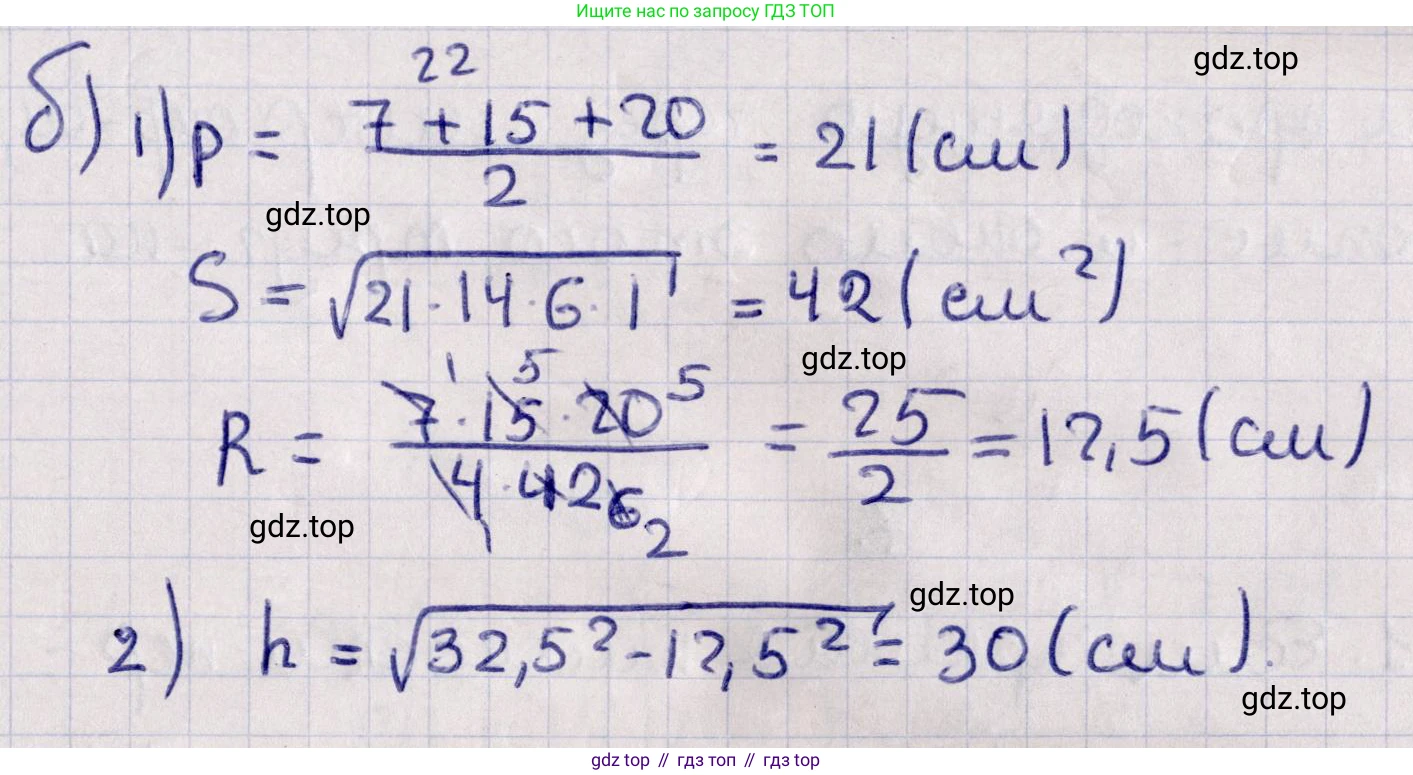 Ищите нас по запросу ГДЗ ТОП
gdz.top
22
б) 1) p = 7 + 15 + 20 / 2 = 21 (см)
gdz.top
S = √21 · 14 · 6 · 1 = 42 (см²)
gdz.top
R = 7 · 15 · 20 / 4 · 42 = 25 / 2 = 12,5 (см)
1 5 5
6 2
1
gdz.top
gdz.top
2) h = √32,5² - 12,5² = 30 (см).
gdz.top
gdz top // гдз топ // гдз top